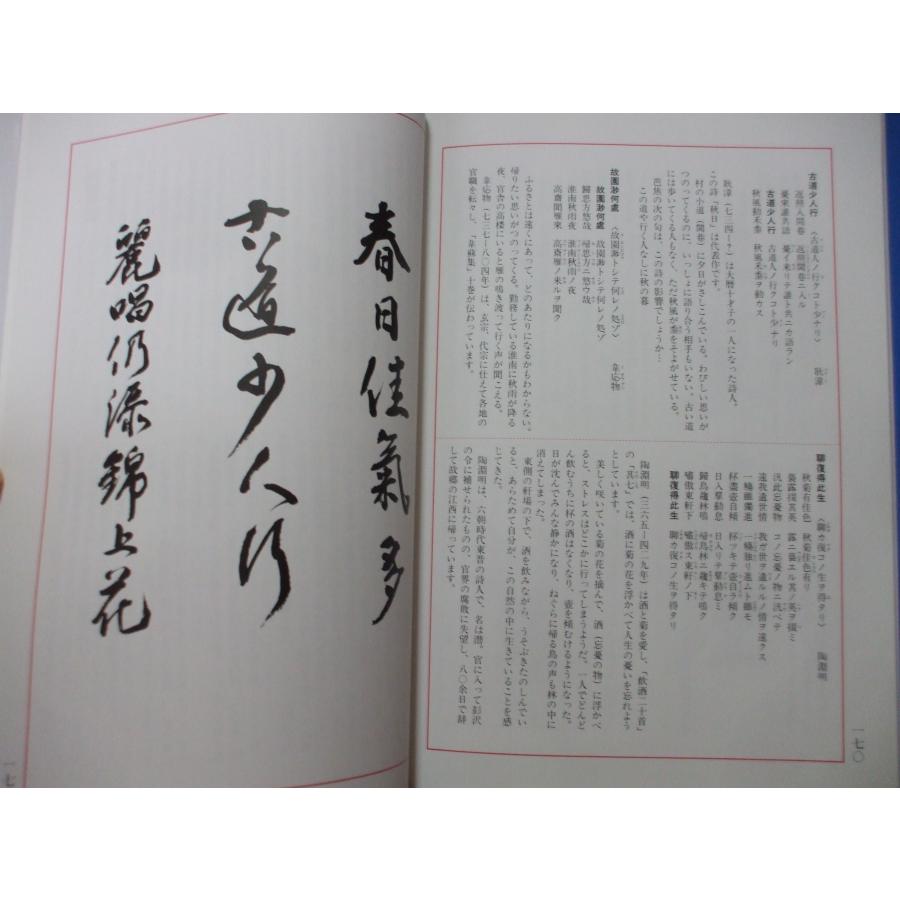 古道少人行 〈古道人ノ行クコト少ナリ〉 耿湋
返照入閭巷 返照閭巷ニ入ル
憂來誰共語 憂イ来リテ誰ト共ニカ語ラン
古道少人行 古道人ノ行クコト少ナリ
秋風動禾黍 秋風禾黍ヲ動カス
耿湋(七三四―?)は大暦十才子の一人になった詩人。
この詩「秋日」は代表作です。
村の小道(閭巷)に夕日がさしこんでいる。わびしい思いが
つのってくるのに、いっしょに語り合う相手もいない。古い道
には歩いてくる人もなく、ただ秋風が黍をそよがせている。
芭蕉の次の句は、この詩の影響でしょうか…
この道や行く人なしに秋の暮
故園渺何處 〈故園渺トシテ何レノ処ゾ〉 韋応物
故園渺何處 故園渺トシテ何レノ処ゾ
歸思方悠哉 帰思方ニ悠ウ哉
淮南秋雨夜 淮南秋雨ノ夜
高齋聞雁來 高斎雁ノ来ルヲ聞ク
ふるさとは遠くにあって、どのあたりになるかもわからない。
帰りたい思いがつのってくる。勤務している淮南に秋雨が降る
夜、官舎の高楼にいると雁の鳴き渡って行く声が聞こえる。
韋応物(七三七―八〇四年)は、玄宗、代宗に仕えて各地の
官職を転々し、「韋蘇集」十巻が伝わっています。
聊復得此生 〈聊カ復コノ生ヲ得タリ〉 陶淵明
秋菊有佳色 秋菊佳色有リ
裛露掇其英 露ニ裛エル其ノ英ヲ掇ミ
汎此忘憂物 コノ忘憂ノ物ニ汎ベテ
遠我遺世情 我ガ世ヲ遺ルルノ情ヲ遠クス
一觴雖獨進 一觴独リ進ムト雖モ
杯盡壺自傾 杯ツキテ壺自ラ傾ク
日入羣動息 日入リテ羣動息ミ
歸鳥趨林鳴 帰鳥林ニ趨キテ鳴ク
嘯傲東軒下 嘯傲ス東軒ノ下
聊復得此生 聊カ復コノ生ヲ得タリ
陶淵明(三六五―四二九年)は酒と菊を愛し、「飲酒二十首」
の「其七」では、酒に菊の花を浮かべて人生の憂いを忘れよう
としています。
美しく咲いている菊の花を摘んで、酒(忘憂の物)に浮かべ
ると、ストレスはどこかに行ってしまうようだ。一人でどんど
ん飲むうちに杯の酒はなくなり、壺を傾むけるようになった。
日が沈んでみんな静かになり、ねぐらに帰る鳥の声も林の中に
消えてしまった。
東側の軒場の下で、酒を飲みながら、うそぶきたのしんでい
ると、あらためて自分が、この自然の中に生きていることを感
じてきた。
陶淵明は、六朝時代東晋の詩人で、名は潜。官に入って彭沢
の令に補せられたものの、官界の腐敗に失望し、八〇余日で辞
して故郷の江西に帰っています。
一七〇
春日佳氣多
古道少人行
麗唱仍添錦上花
一七